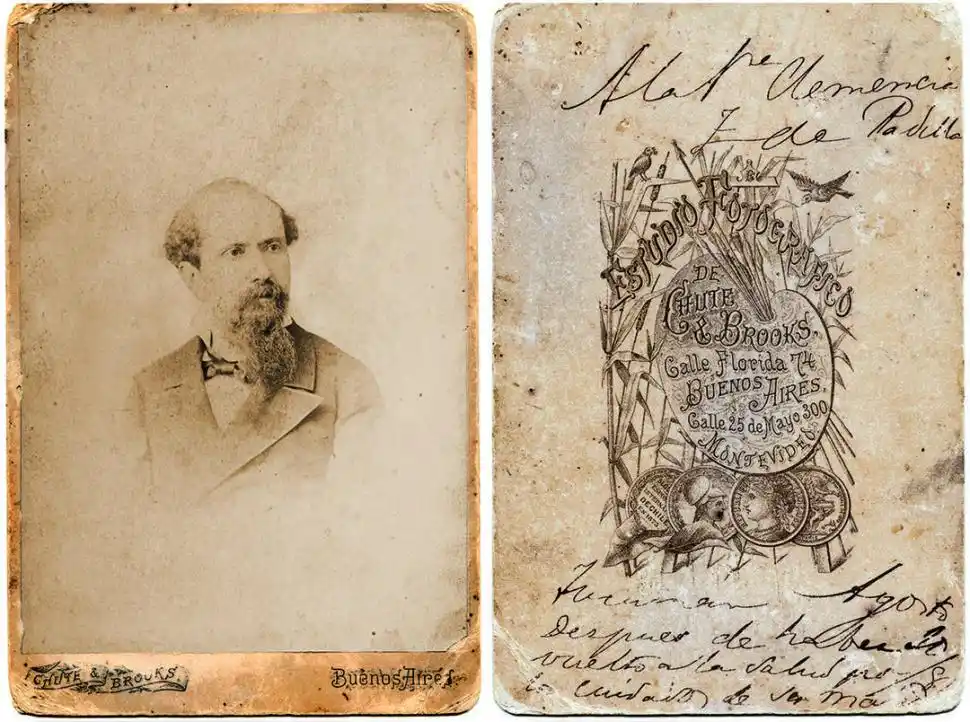 CHUTE & BROOKS
Buenos Aires.
A la Sra Clemencia
Z de Padilla
ESTUDIO FOTOGRÁFICO
DE
CHUTE
& BROOKS.
Calle Florida 74
BUENOS AIRES.
Calle 25 de Mayo 300
MONTEVIDEO
DE CHILE
Tucuman Agosto
Despues de haber
vuelto a la salud por
cuidados de